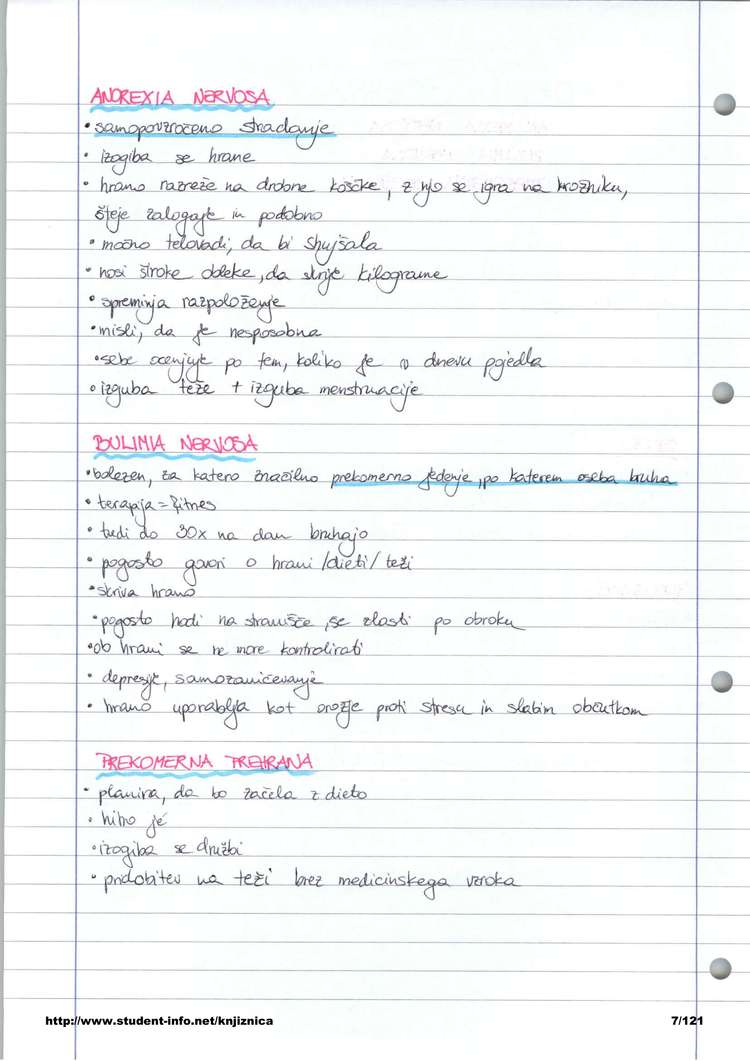 ANOREXIA NERVOSA
• samopovzročeno stradanje
• izogiba se hrane
• hrano razreže na drobne koščke, z njo se igra na krožniku,
šteje zalogaje in podobno
• močno telovadi, da bi shujšala
• nosi široke obleke, da skrije kilograme
• spreminja razpoloženje
• misli, da je nesposobna
• sebe ocenjuje po tem, koliko je v dnevu pojedla
• izguba teže + izguba menstruacije
BULIMIA NERVOSA
• bolezen, za katero značilno prekomerno jedenje, po katerem oseba bruha
• terapija = fitnes
• tudi do 30x na dan bruhajo
• pogosto govori o hrani / dieti / teži
• skriva hrano
• pogosto hodi na stranišče, še zlasti po obroku
• ob hrani se ne more kontrolirati
• depresije, samozaničevanje
• hrano uporablja kot orožje proti stresu in slabim občutkom
PREKOMERNA PREHRANA
• planira, da bo začela z dieto
• hitro je
• izogiba se družbi
• pridobitev na teži brez medicinskega vzroka
http://www.student-info.net/knjiznica
7/121